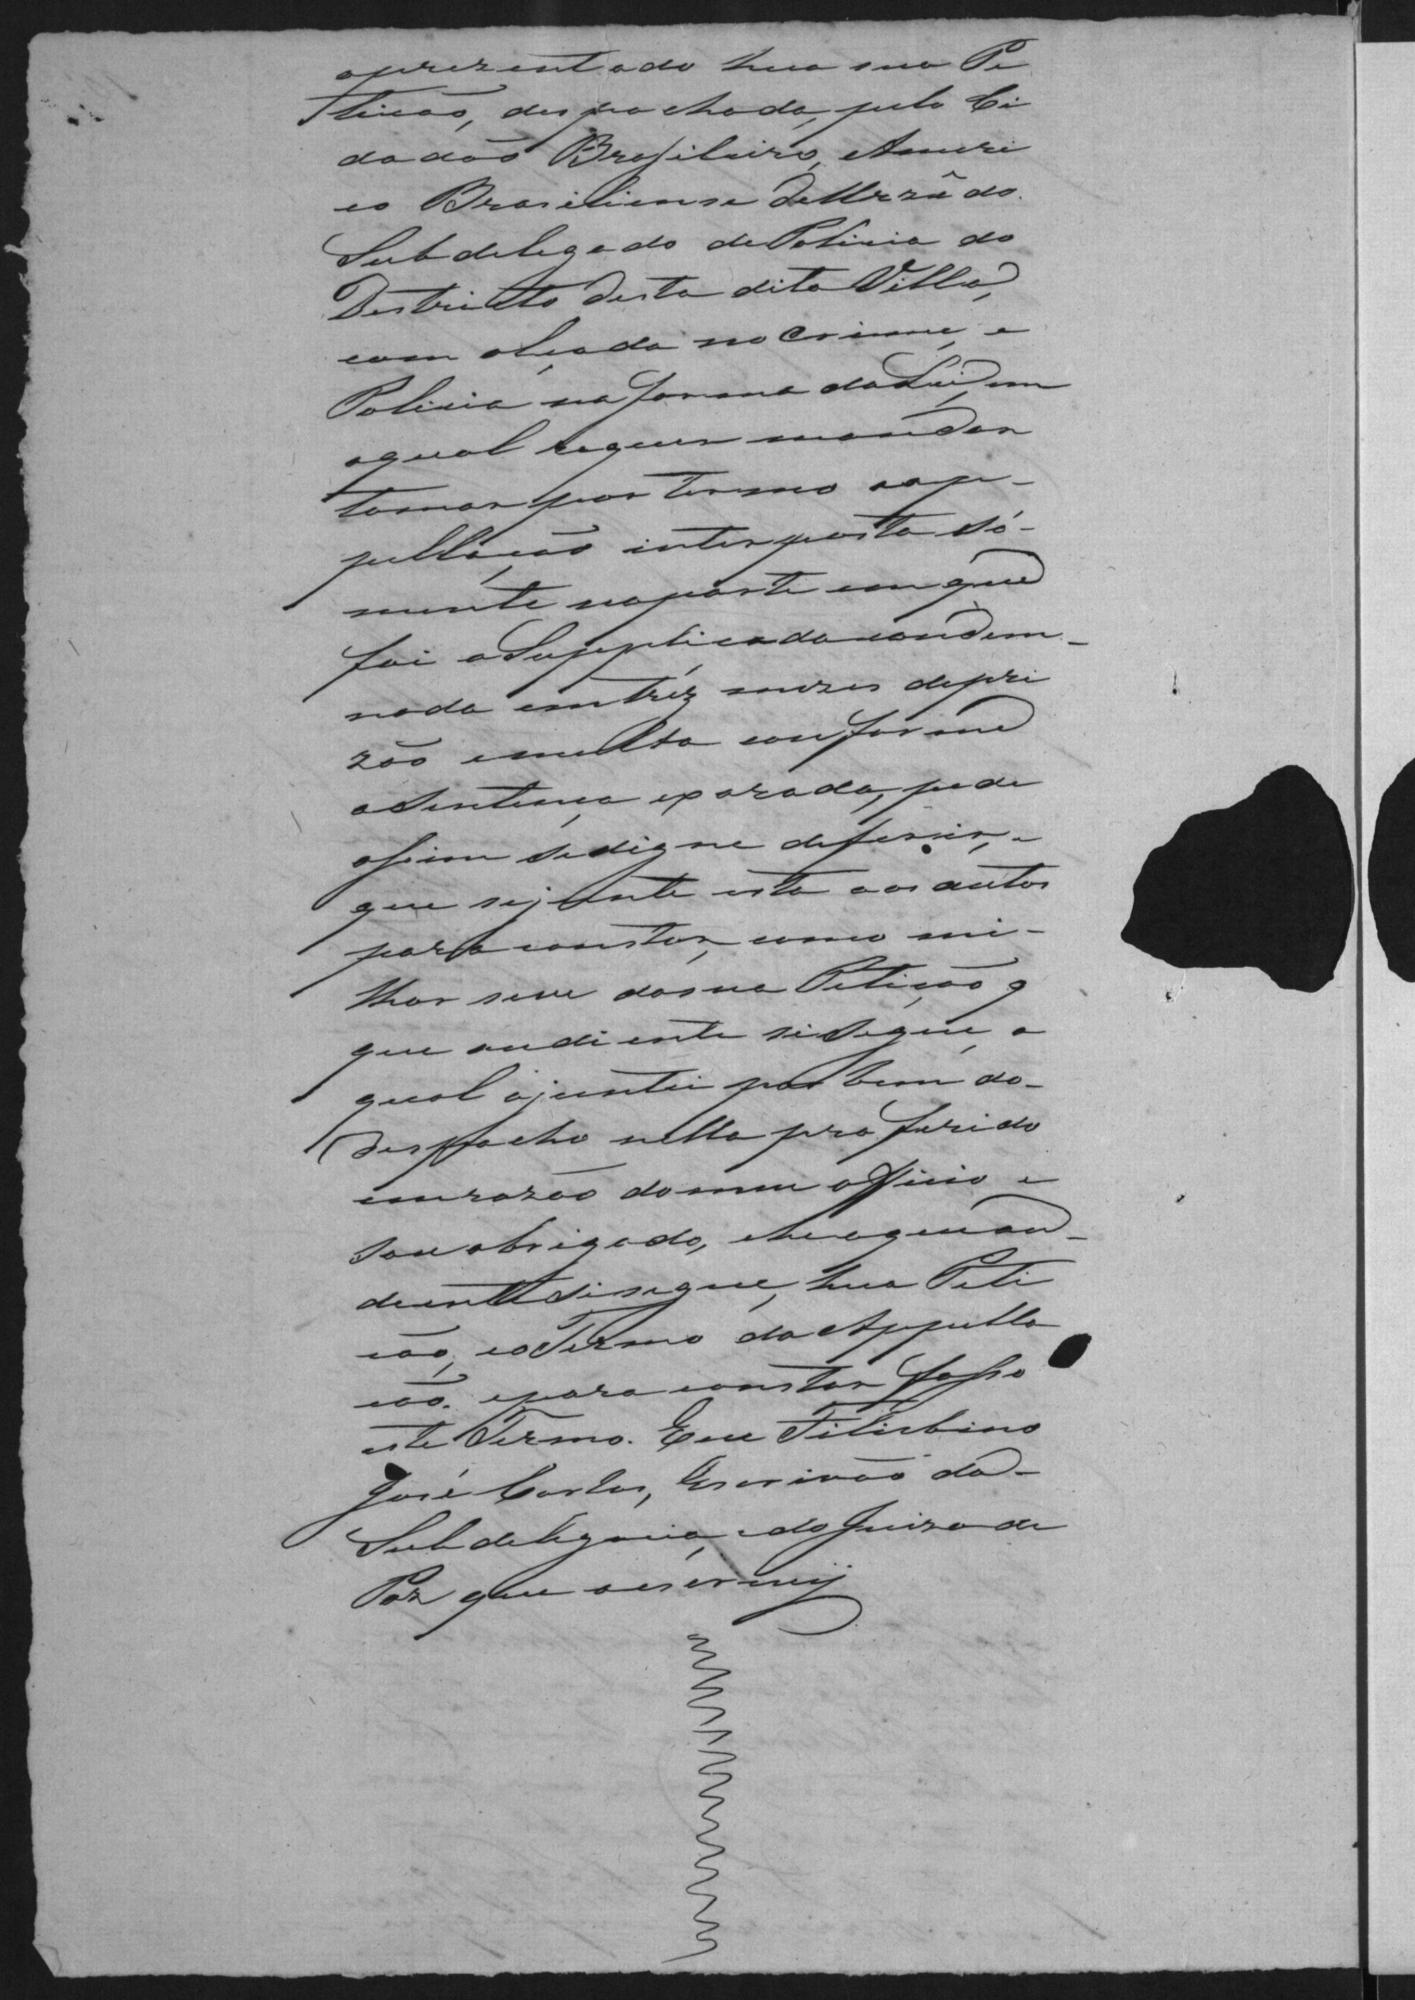 aprezentado hua sua Pe
tiçaõ, despachada, pelo Ci
dadaõ Brasileiro, Ameri
co Brasiliense
Subdelegado de Policia do
Destricto desta dita Villa,
com alçada no Crime, e
Policia na forma da Lei, em
aqual requer mandar
tomar por termo aape-
pellaçaõ interposta só-
mente naparte em que
foi a Supplicada condem-
nada em tréz mezes depri
zaõ emulta conforme
aSentença exarada, pede
assim sedigne deferir, e
que sejunte esta aos autos
para constar, como mi-
lhor seve dasua Petiçaõ q
que audiente siSegue, a
qual ajuntei por bem do-
Despacho nella proferido
emrazaõ domeu officio e
sou obrigado, eheoqueau-
deante Sisegue, hua Peti
caõ, eoTermo daAppella
caõ. epara constar fasso
este Termo. Eeu Filisbino
José Carlos, Escrivaõ da-
Subdelegacia, edo Juizo de
Paz que oescrevij